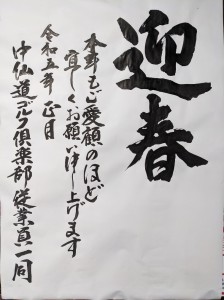 迎春
本年もご愛顧のほど
宜しくお願い申し上げます
令和五年 正月
中仙道ゴルフ倶楽部 従業員一同